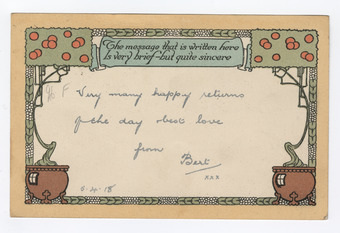 The message that is written here
Is very brief - but quite sincere
Very many happy returns
of the day & best love
from
Bert
xxx
6-4-18